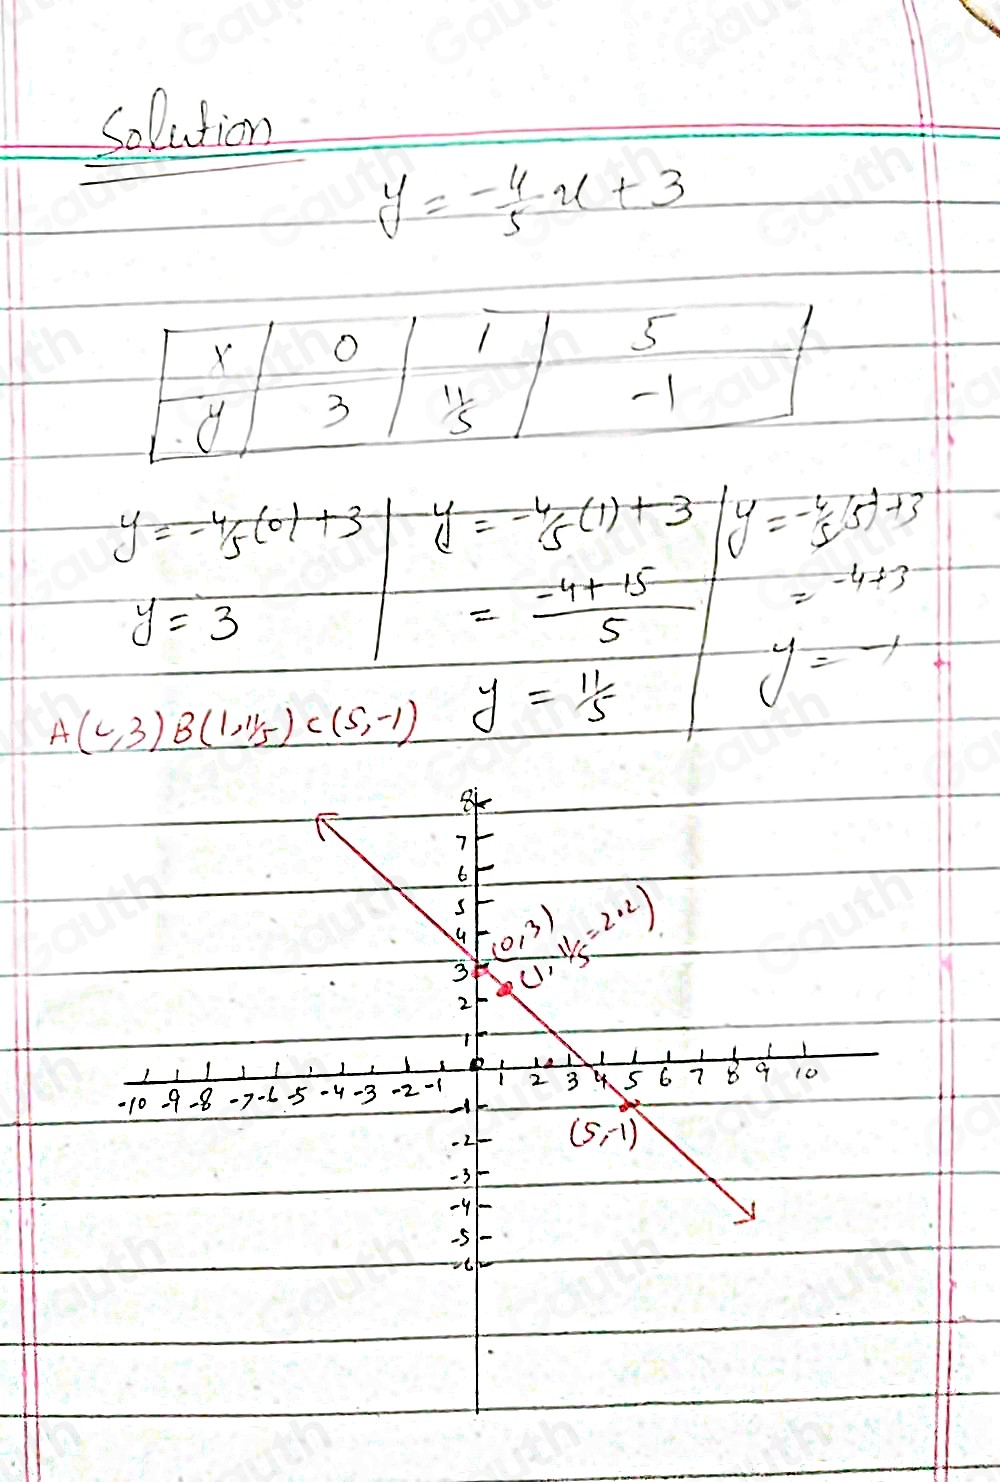 Solution
y = -4/5 x + 3
x 0 1 5
y 3 11/5 -1
y = -4/5(0) + 3 y = -4/5(1) + 3 y = -4/5(5) + 3
y = 3 = -4+15/5 = -4+3
y = 11/5 y = -1
A(0,3) B(1,11/5) C(5,-1)
8
7
6
5
4
3
2
1
(0,3)
(1, 11/5=2.2)
-10 -9 -8 -7 -6 -5 -4 -3 -2 -1 0 1 2 3 4 5 6 7 8 9 10
(5,-1)
-1
-2
-3
-4
-5
-6
Gauth